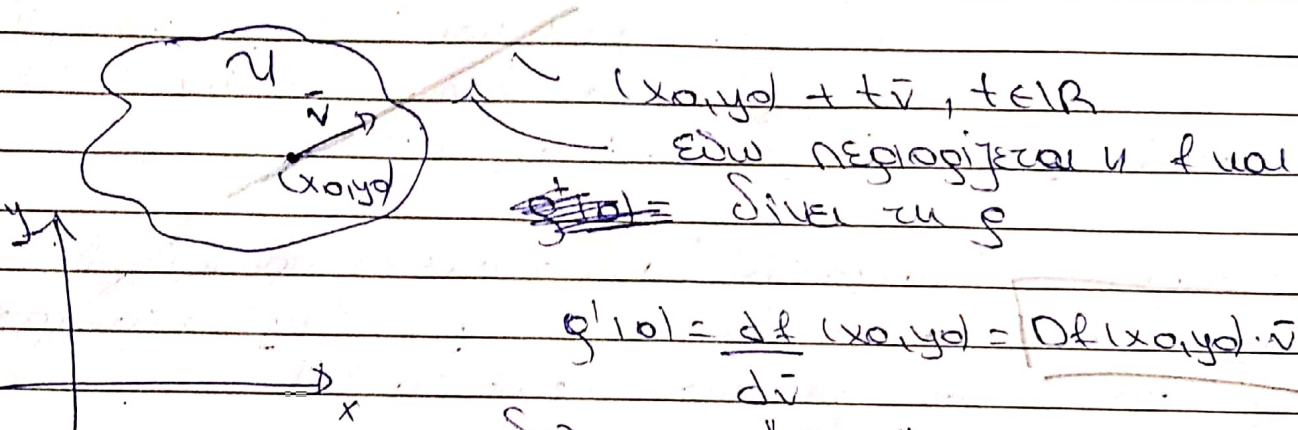 U
v̄
(x0,y0)
y
x
(x0,y0) + tv̄, t∈ℝ
εδω περιορίζεται η f και
δίνει τη g
g'(0) = df/dv̄ (x0,y0) = Df(x0,y0)·v̄